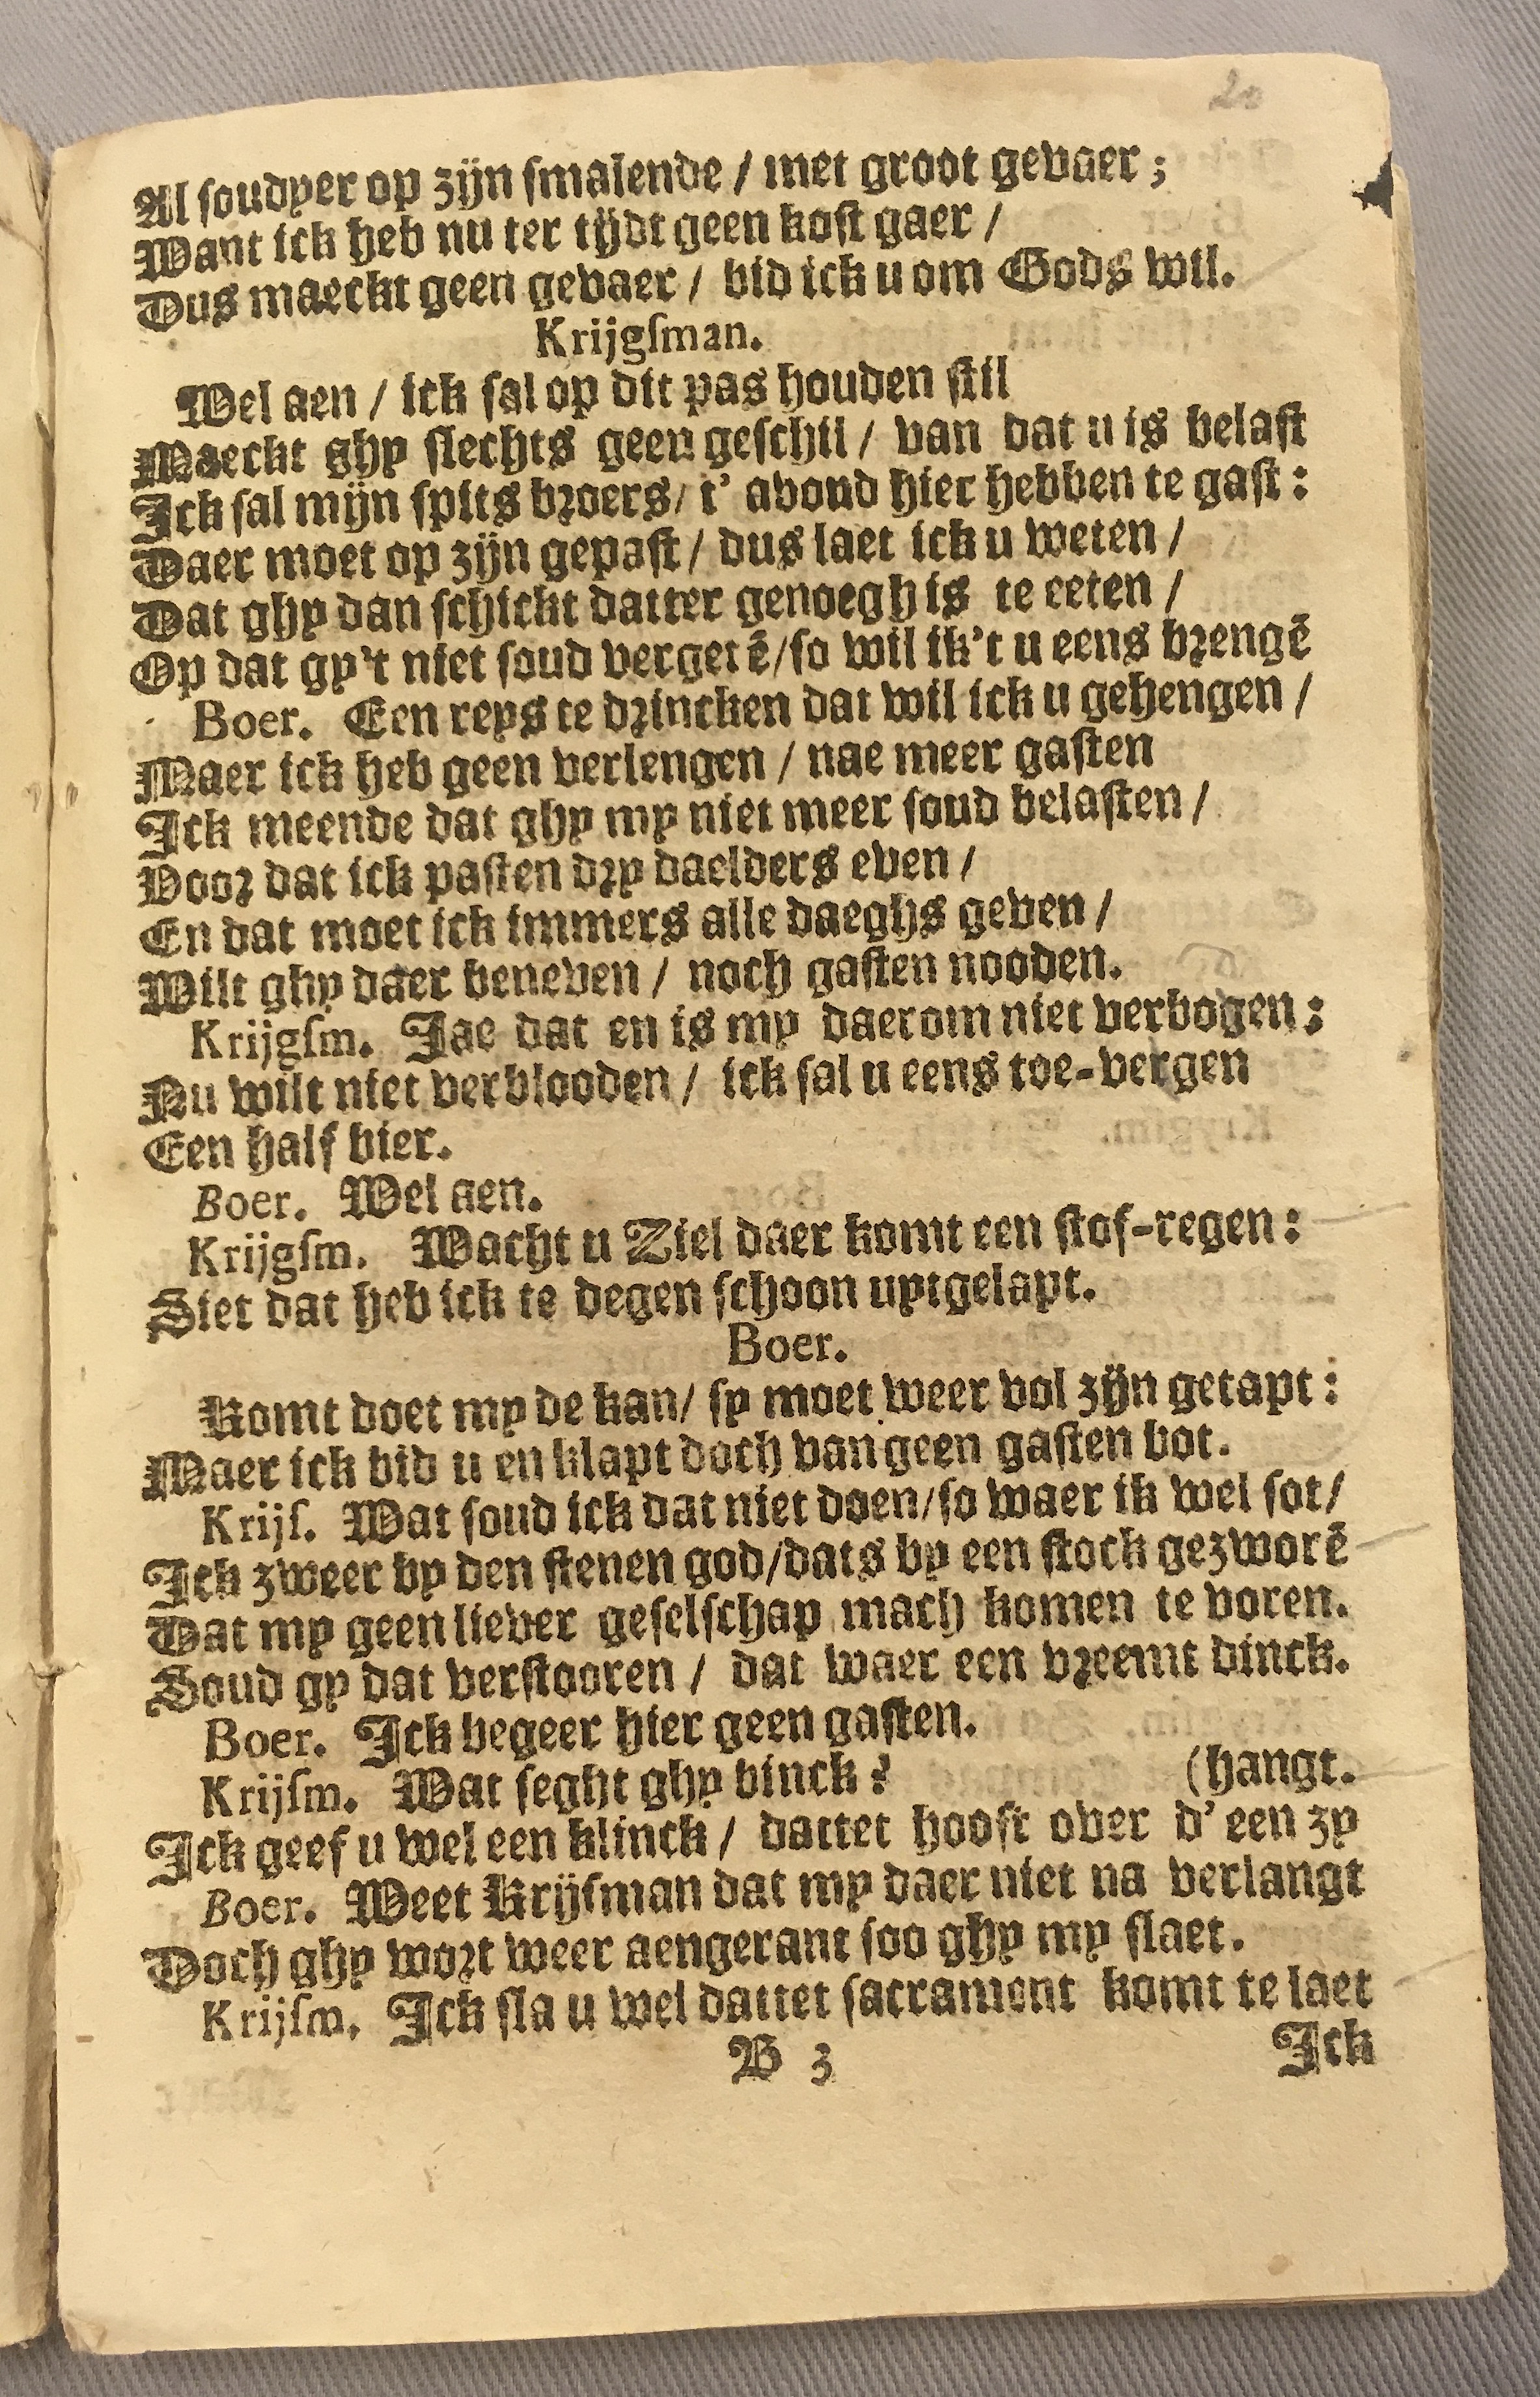 20
Al soudyer op zijn smalende / met groot gevaer;
Want ick heb nu ter tijdt geen kost gaer /
Dus maeckt geen gevaer / bid ick u om Gods wil.
Krijgſman.
Wel aen / ick sal op dit pas houden stil
Maeckt ghy slechts geen geschil / van dat u is belast
Ick sal mijn spits broers / t' avond hier hebben te gast:
Daer moet op zijn gepast / dus laet ick u weten /
Dat ghy dan schickt datter genoegh is te eeten /
Op dat gy't niet soud vergetē / so wil ik't u eens brengē
Boer. Een reys te drincken dat wil ick u gehengen /
Maer ick heb geen verlengen / nae meer gasten
Ick meende dat ghy my niet meer soud belasten /
Door dat ick pasten dry daelders even /
En dat moet ick immers alle daeghs geven /
Wilt ghy daer beneven / noch gasten nooden.
Krijgſm. Jae dat en is my daerom niet verbogen;
Nu wilt niet verblooden / ick sal u eens toe-vergen
Een half bier.
Boer. Wel aen.
Krijgſm. Wacht u Ziel daer komt een stof-regen:
Siet dat heb ick te degen schoon uytgelapt.
Boer.
Komt doet my de kan / sy moet weer vol zijn getapt:
Maer ick bid u en klapt doch van geen gasten bot.
Krijſ. Wat soud ick dat niet doen / so waer ik wel sot /
Ick zweer by den stenen god / dats by een stock gezworē
Dat my geen liever geselschap mach komen te voren.
Soud gy dat verstooren / dat waer een vreemt dinck.
Boer. Ick begeer hier geen gasten.
Krijſm. Wat seght ghy vinck? (hangt.
Ick geef u wel een klinck / dattet hooft over d' een zy
Boer. Weet Krijsman dat my daer niet na verlangt
Doch ghy wort weer aengerant soo ghy my slaet.
Krijſm. Ick sla u wel dattet sacrament komt te laet
B 3 Ick